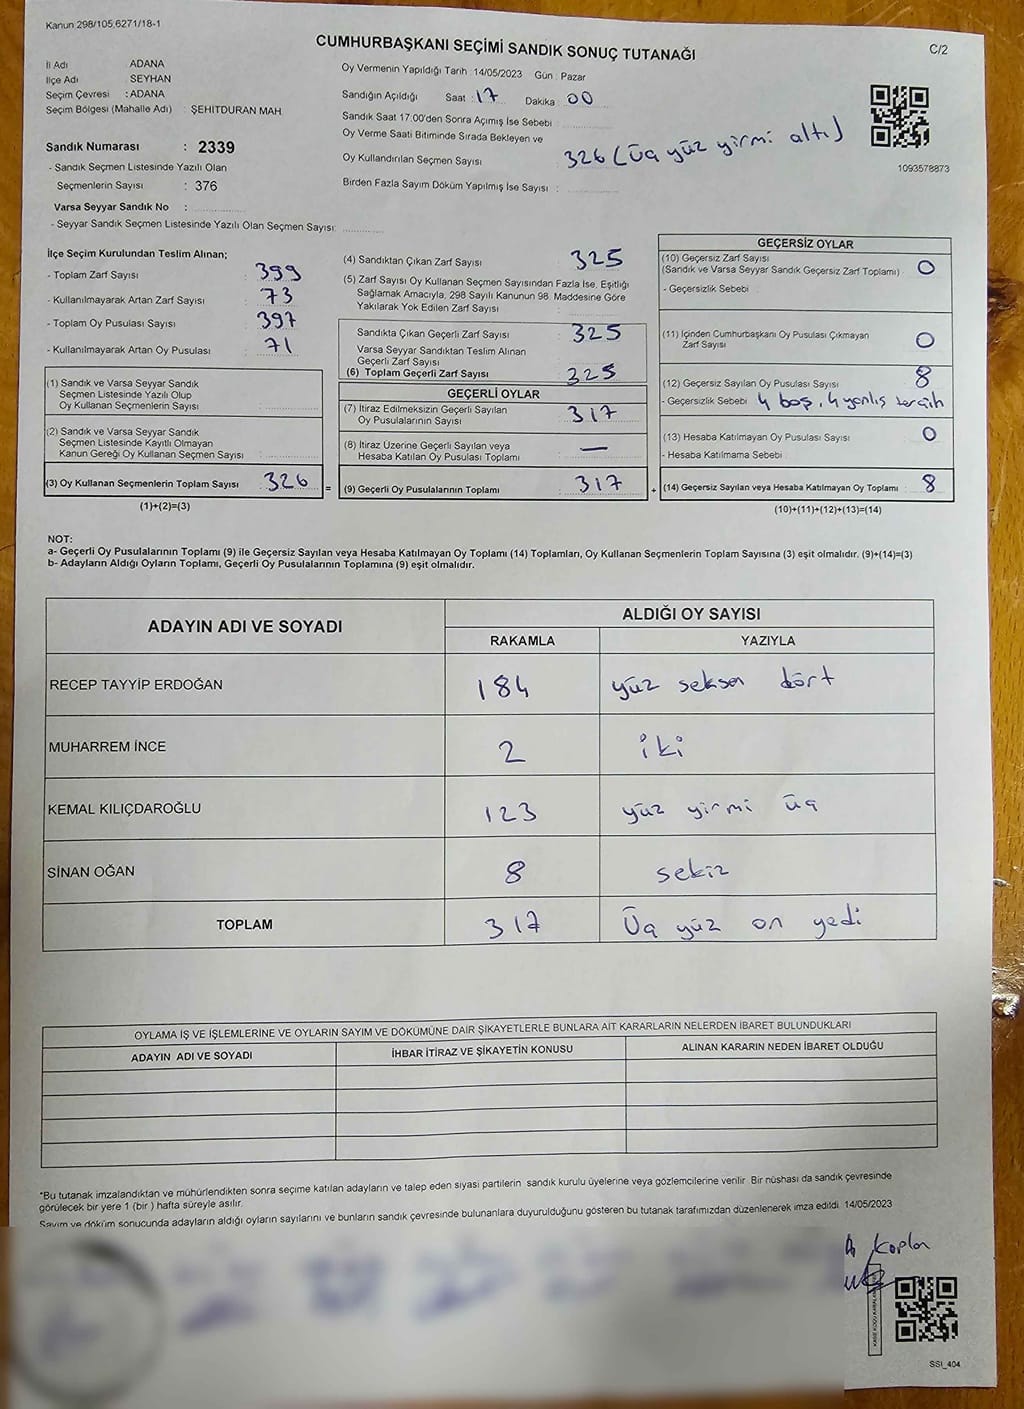 Kanun 298/105,6271/18-1
CUMHURBAŞKANI SEÇİMİ SANDIK SONUÇ TUTANAĞI
C/2
İl Adı ADANA
İlçe Adı SEYHAN
Seçim Çevresi : ADANA
Seçim Bölgesi (Mahalle Adı) : ŞEHİTDURAN MAH.
Sandık Numarası : 2339
- Sandık Seçmen Listesinde Yazılı Olan
Seçmenlerin Sayısı : 376
Varsa Seyyar Sandık No :
- Seyyar Sandık Seçmen Listesinde Yazılı Olan Seçmen Sayısı:
Oy Vermenin Yapıldığı Tarih :14/05/2023 Gün : Pazar
Sandığın Açıldığı Saat : 17 Dakika : 00
Sandık Saat 17.00'den Sonra Açımış İse Sebebi :
Oy Verme Saati Bitiminde Sırada Bekleyen ve
Oy Kullandırılan Seçmen Sayısı 326 (üç yüz yirmi altı)
Birden Fazla Sayım Döküm Yapılmış İse Sayısı :
1093578873
İlçe Seçim Kurulundan Teslim Alınan;
- Toplam Zarf Sayısı 399
- Kullanılmayarak Artan Zarf Sayısı 73
- Toplam Oy Pusulası Sayısı 397
- Kullanılmayarak Artan Oy Pusulası 71
(1) Sandık ve Varsa Seyyar Sandık
Seçmen Listesinde Yazılı Olup
Oy Kullanan Seçmenlerin Sayısı
(2) Sandık ve Varsa Seyyar Sandık
Seçmen Listesinde Kayıtlı Olmayan
Kanun Gereği Oy Kullanan Seçmen Sayısı
(3) Oy Kullanan Seçmenlerin Toplam Sayısı : 326 =
(1)+(2)=(3)
(4) Sandıktan Çıkan Zarf Sayısı 325
(5) Zarf Sayısı Oy Kullanan Seçmen Sayısından Fazla İse, Eşitliği
Sağlamak Amacıyla, 298 Sayılı Kanunun 98. Maddesine Göre
Yakılarak Yok Edilen Zarf Sayısı :
Sandıkta Çıkan Geçerli Zarf Sayısı 325
Varsa Seyyar Sandıktan Teslim Alınan
Geçerli Zarf Sayısı
(6) Toplam Geçerli Zarf Sayısı 325
GEÇERLİ OYLAR
(7) İtiraz Edilmeksizin Geçerli Sayılan
Oy Pusulalarının Sayısı 317
(8) İtiraz Üzerine Geçerli Sayılan veya
Hesaba Katılan Oy Pusulası Toplamı —
(9) Geçerli Oy Pusulalarının Toplamı 317 +
GEÇERSİZ OYLAR
(10) Geçersiz Zarf Sayısı
(Sandık ve Varsa Seyyar Sandık Geçersiz Zarf Toplamı) : 0
- Geçersizlik Sebebi :
(11) İçinden Cumhurbaşkanı Oy Pusulası Çıkmayan
Zarf Sayısı 0
(12) Geçersiz Sayılan Oy Pusulası Sayısı 8
- Geçersizlik Sebebi 4 boş, 4 yanlış tercih
(13) Hesaba Katılmayan Oy Pusulası Sayısı 0
- Hesaba Katılmama Sebebi
(14) Geçersiz Sayılan veya Hesaba Katılmayan Oy Toplamı : 8
(10)+(11)+(12)+(13)=(14)
NOT:
a- Geçerli Oy Pusulalarının Toplamı (9) ile Geçersiz Sayılan veya Hesaba Katılmayan Oy Toplamı (14) Toplamları, Oy Kullanan Seçmenlerin Toplam Sayısına (3) eşit olmalıdır. (9)+(14)=(3)
b- Adayların Aldığı Oyların Toplamı, Geçerli Oy Pusulalarının Toplamına (9) eşit olmalıdır.
ADAYIN ADI VE SOYADI ALDIĞI OY SAYISI
RAKAMLA YAZIYLA
RECEP TAYYİP ERDOĞAN 184 yüz seksen dört
MUHARREM İNCE 2 iki
KEMAL KILIÇDAROĞLU 123 yüz yirmi üç
SİNAN OĞAN 8 sekiz
TOPLAM 317 Üç yüz on yedi
OYLAMA İŞ VE İŞLEMLERİNE VE OYLARIN SAYIM VE DÖKÜMÜNE DAİR ŞİKAYETLERLE BUNLARA AİT KARARLARIN NELERDEN İBARET BULUNDUKLARI
ADAYIN ADI VE SOYADI İHBAR İTİRAZ VE ŞİKAYETİN KONUSU ALINAN KARARIN NEDEN İBARET OLDUĞU
*Bu tutanak imzalandıktan ve mühürlendikten sonra seçime katılan adayların ve talep eden siyasi partilerin sandık kurulu üyelerine veya gözlemcilerine verilir. Bir nüshası da sandık çevresinde
görülecek bir yere 1 (bir ) hafta süreyle asılır.
Sayım ve döküm sonucunda adayların aldığı oyların sayılarını ve bunların sandık çevresinde bulunanlara duyurulduğunu gösteren bu tutanak tarafımızdan düzenlenerek imza edildi. 14/05/2023
SSI_404